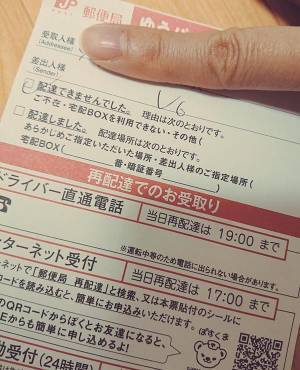 JP
POST
郵便局
ゆう
受取人様
(Addressee)
差出人様
(Sender)
V6
配達できませんでした。 理由は次のとおりです。
ご不在・宅配BOXを利用できない・その他(
配達しました。 配達場所は次のとおりです。
あらかじめご指定いただいた場所・差出人様のご指定場所(
宅配BOX( 番・暗証番号 )
再配達でのお受取り
ドライバー直通電話
当日再配達は 19:00 まで
※運転中等のため電話に出られない場合があります。
ターネット受付
当日再配達は 17:00 まで
ネットで「郵便局 再配達」と検索、又は本票貼付のシールに
コードを読み込むと、簡単にお申込みいただけます。
のQRコードからぽくとお友達になると、
Eからも簡単に申し込めるよ!
ぽすくま
動受付(24時間)